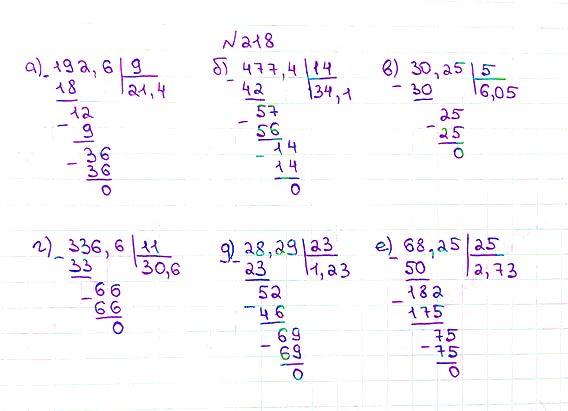 №218
а) 192,6 | 9
- 18 | 21,4
12
- 9
36
- 36
0
б) 477,4 | 14
- 42 | 34,1
57
- 56
14
- 14
0
в) 30,25 | 5
- 30 | 6,05
25
- 25
0
г) 336,6 | 11
- 33 | 30,6
66
- 66
0
д) 28,29 | 23
- 23 | 1,23
52
- 46
69
- 69
0
е) 68,25 | 25
- 50 | 2,73
182
- 175
75
- 75
0